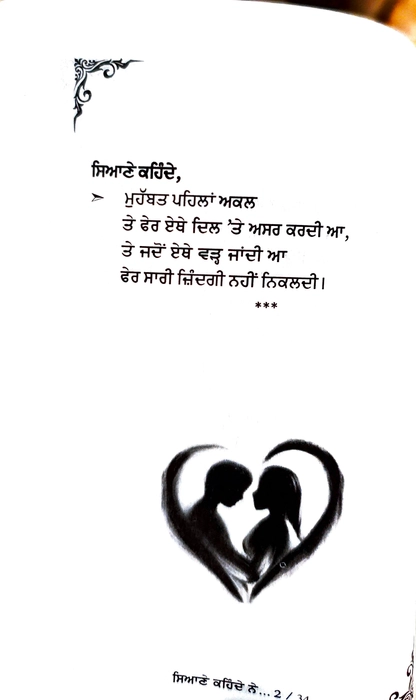 ਸਿਆਣੇ ਕਹਿੰਦੇ,
➢ ਮੁਹੱਬਤ ਪਹਿਲਾਂ ਅਕਲ
ਤੇ ਫੇਰ ਏਥੇ ਦਿਲ 'ਤੇ ਅਸਰ ਕਰਦੀ ਆ,
ਤੇ ਜਦੋਂ ਏਥੇ ਵੜ੍ਹ ਜਾਂਦੀ ਆ
ਫੇਰ ਸਾਰੀ ਜ਼ਿੰਦਗੀ ਨਹੀਂ ਨਿਕਲਦੀ।
***
ਸਿਆਣੇ ਕਹਿੰਦੇ ਨੇ... 2 /